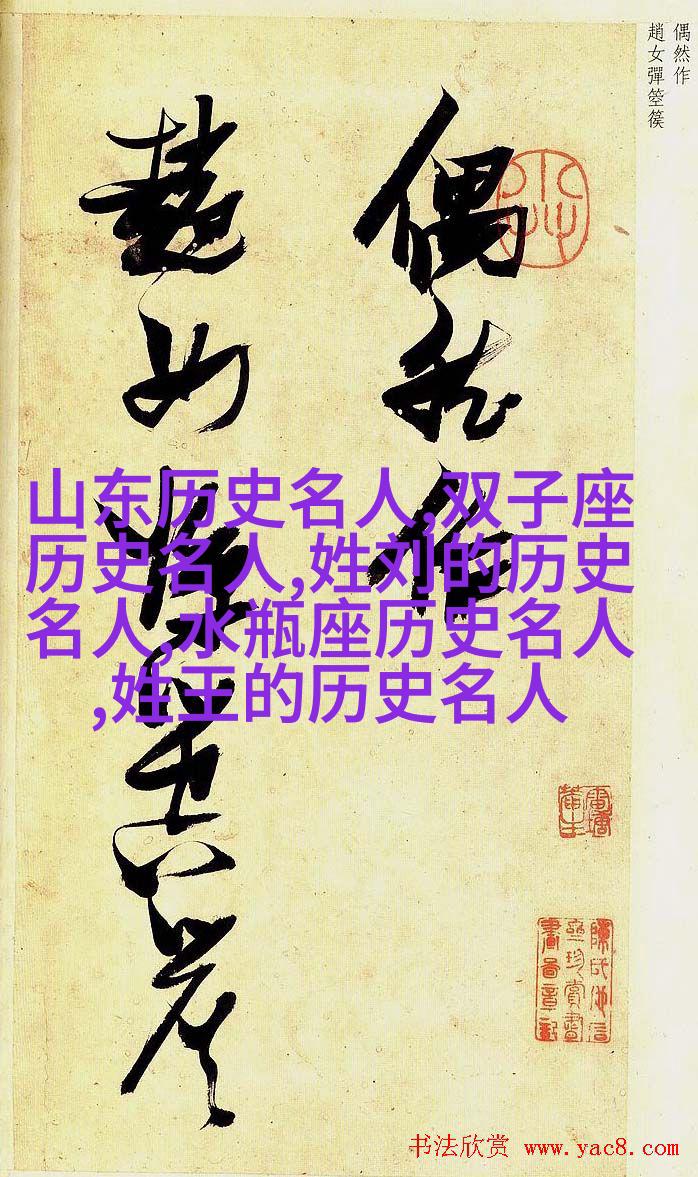 偶然作
趙女彈箜篌
偶然作
趙女彈箜篌
山东历史名人,双子座
历史名人,姓刘的历史
名人,水瓶座历史名人
,姓王的历史名人
书法欣赏 www.yac8.com